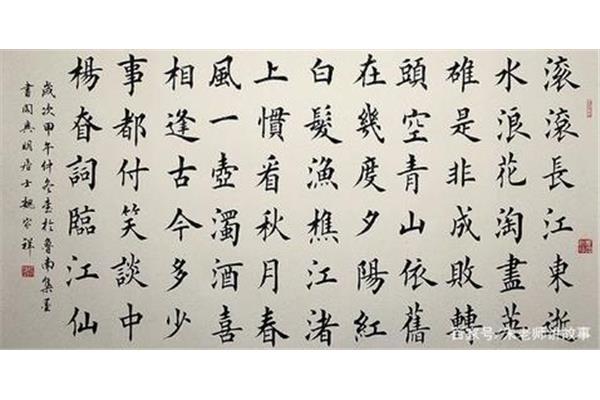 滚滚長江東逝
水浪花淘盡英
雄是非成敗轉
頭空青山依舊
在幾度夕陽紅
白髮漁樵江渚
上慣看秋月春
風一壺濁酒喜
相逢古今多少
事都付笑談中
楊眘詞臨江仙
歲次甲午仲冬書於魯南集墨
書閣居士魏祥
百家号 老师讲故事